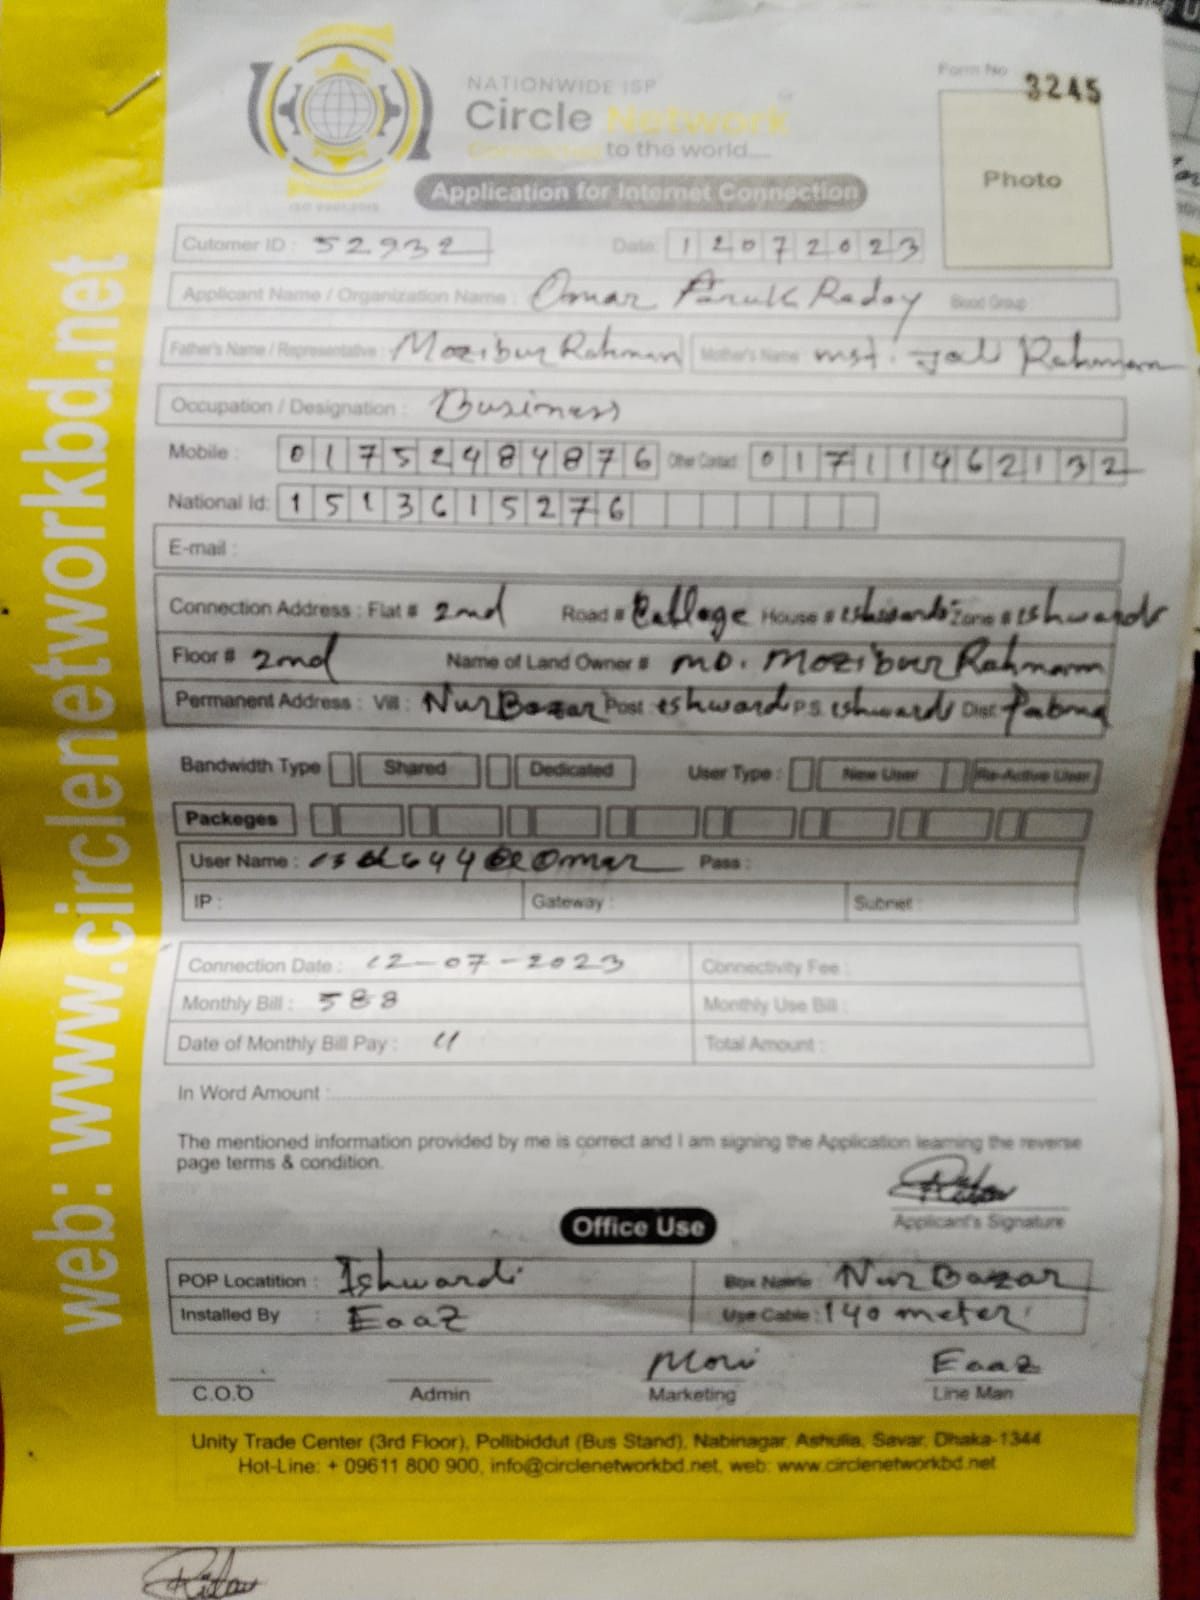 NATIONWIDE ISP
Circle Network
Connected to the world....
Form No 3245
Photo
Application for Internet Connection
Cutomer ID : 52932 Date: 12072023
Applicant Name / Organization Name : Omar Faruk Radoy Blood Group
Father's Name / Representative : Mozibur Rahman Mother's Name mst. Rahman
Occupation / Designation : Business
Mobile : 01752484876 Other Contact 01711462132
National Id: 1513615276
E-mail :
Connection Address : Flat # 2nd Road # Collage House # eshwardi Zone # eshwardi
Floor # 2nd Name of Land Owner # MD. Mozibur Rahman
Permanent Address : Vill : Nur Bazar Post eshwardi P.S eshwardi Dist: Pabna
Bandwidth Type Shared Dedicated User Type : New User Re-Active User
Packeges
User Name : Omar Pass :
IP : Gateway : Subnet :
Connection Date : 12-07-2023 Connectivity Fee :
Monthly Bill : 588 Monthly Use Bill :
Date of Monthly Bill Pay : Total Amount :
In Word Amount :
The mentioned information provided by me is correct and I am signing the Application learning the reverse
page terms & condition.
Applicant's Signature
Office Use
POP Locatition : Ishwardi Box Name : Nur Bazar
Installed By : Eaaz Use Cable : 140 meter
Eaaz
C.O.O Admin Marketing Line Man
Unity Trade Center (3rd Floor), Pollibiddut (Bus Stand), Nabinagar, Ashulia, Savar, Dhaka-1344
Hot-Line: + 09611 800 900, info@circlenetworkbd.net, web: www.circlenetworkbd.net
web: www.circlenetworkbd.net